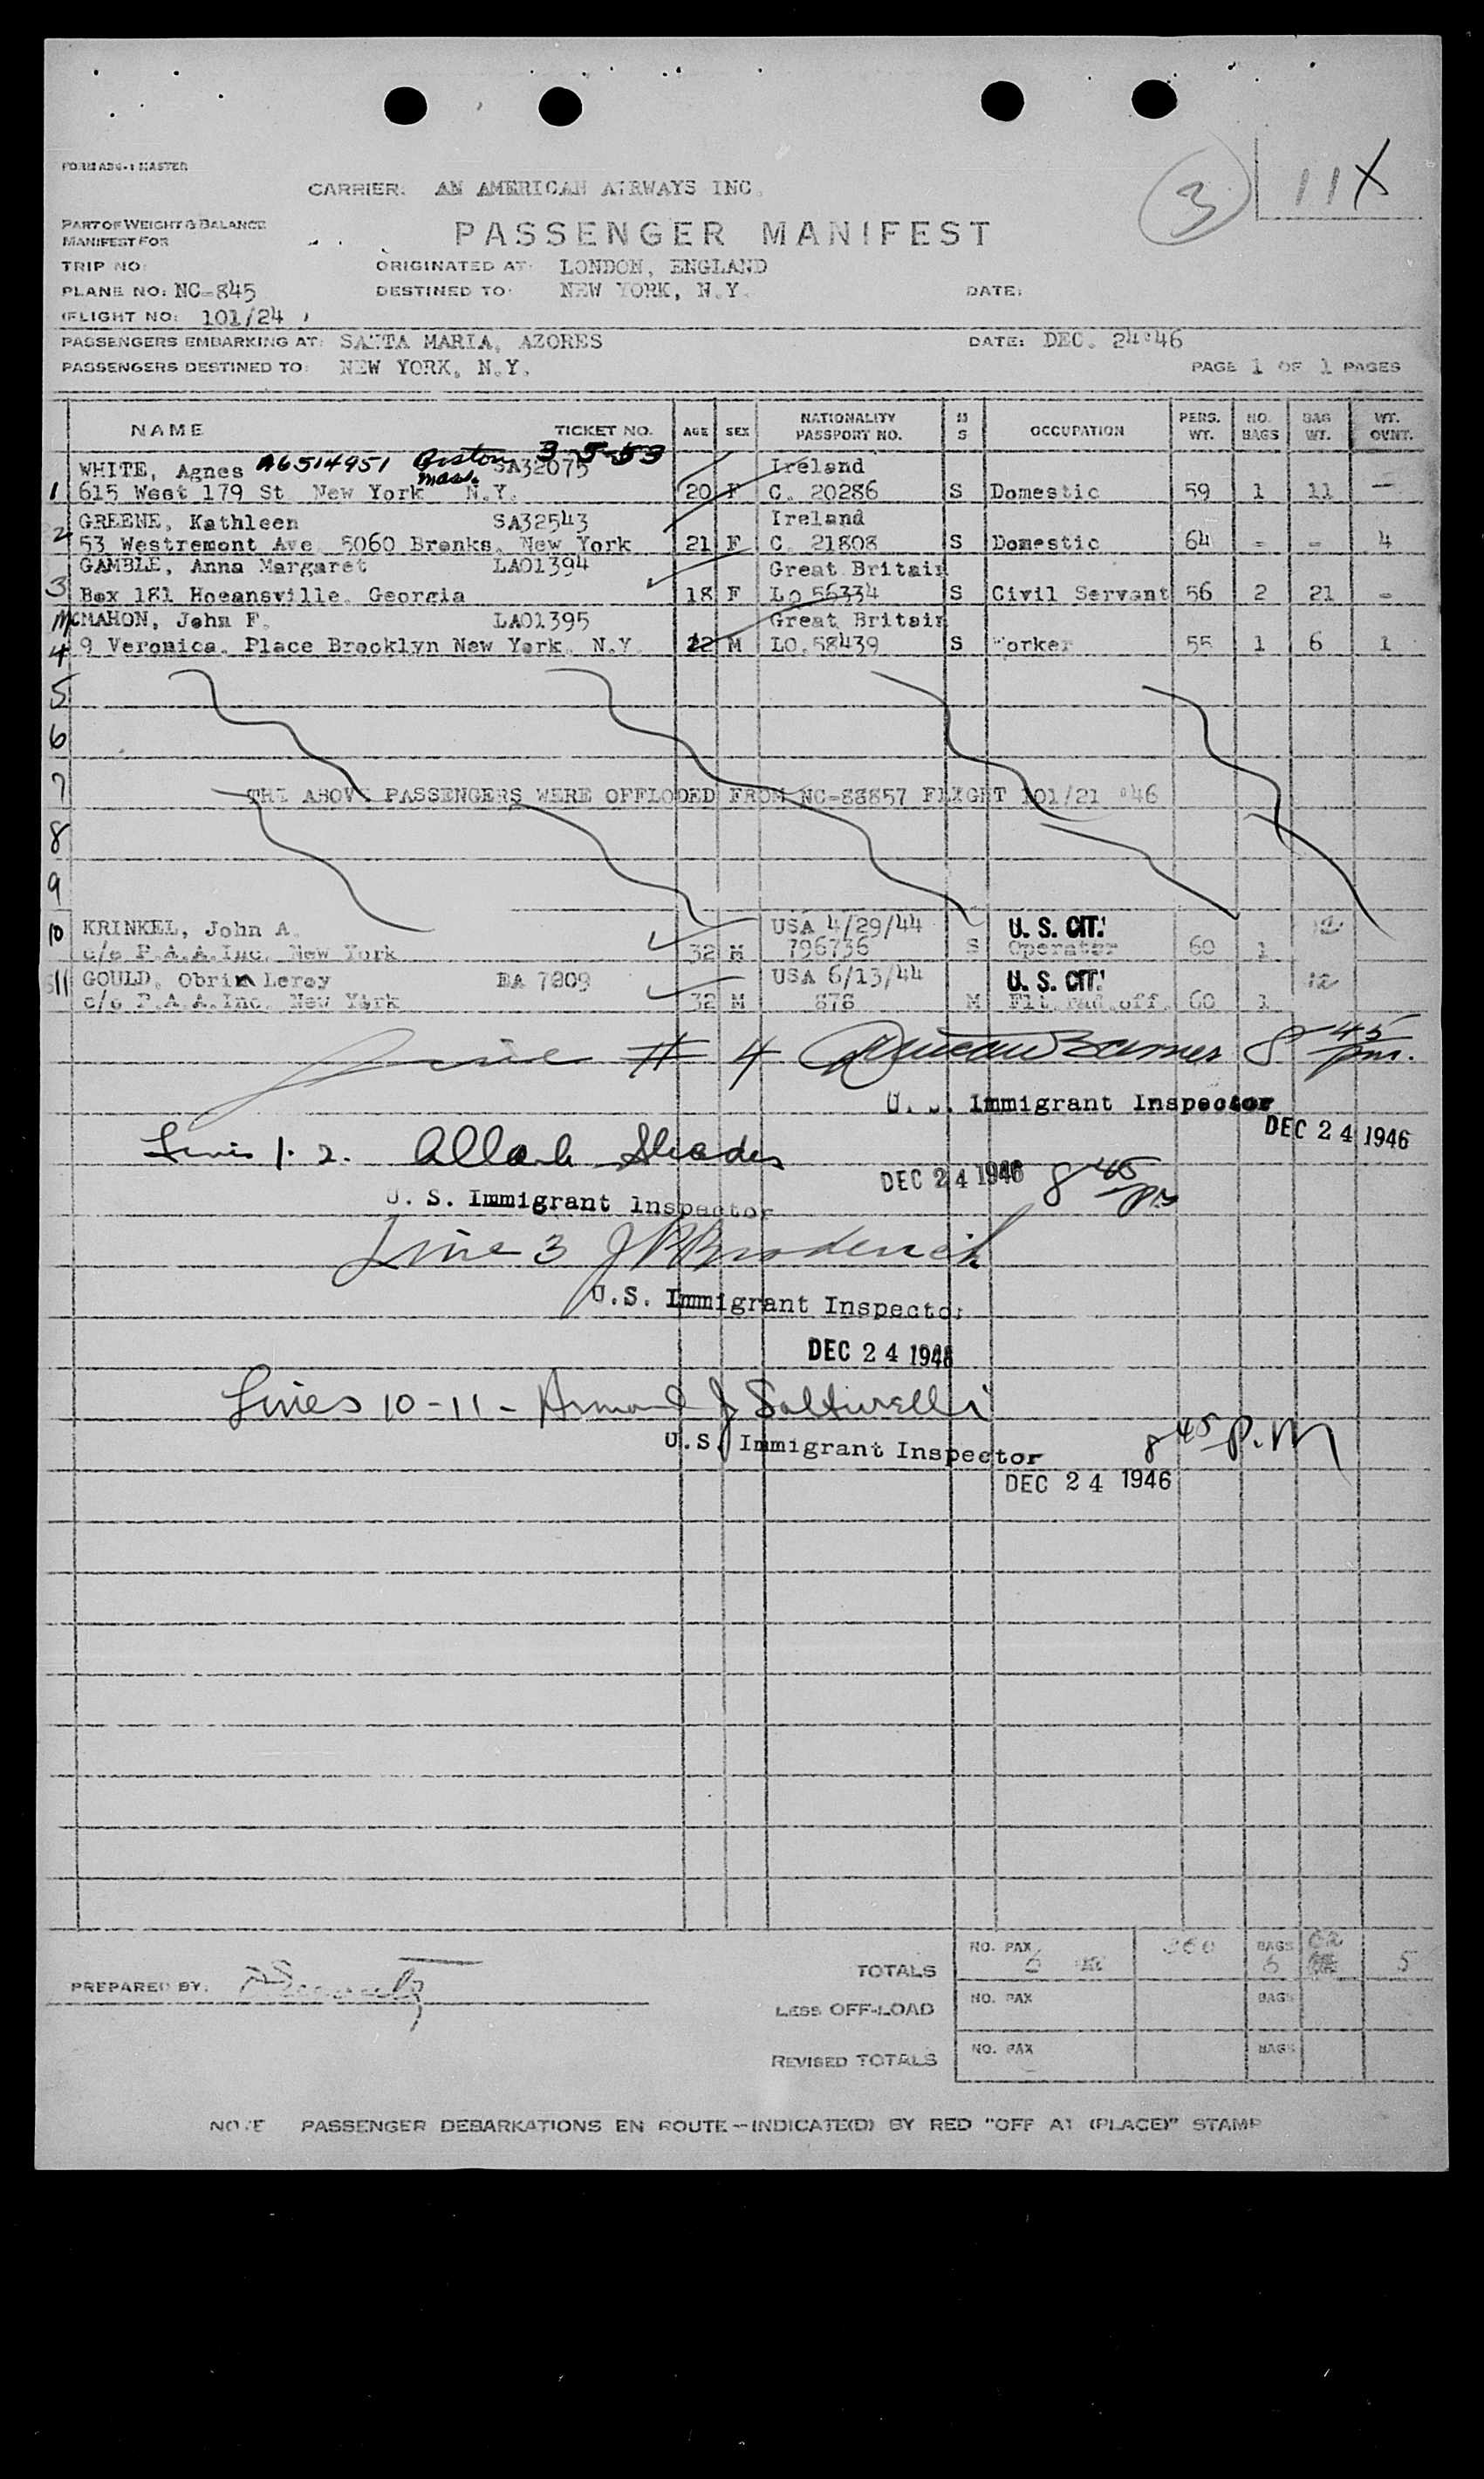 FORM ABG-1 MASTER
CARRIER: AN AMERICAN AIRWAYS INC.
3 11X
PART OF WEIGHT & BALANCE
MANIFEST FOR
PASSENGER MANIFEST
TRIP NO: ORIGINATED AT: LONDON, ENGLAND
PLANE NO: NC-845 DESTINED TO: NEW YORK, N.Y. DATE:
(FLIGHT NO: 101/24 )
PASSENGERS EMBARKING AT: SANTA MARIA, AZORES DATE: DEC. 24'46
PASSENGERS DESTINED TO: NEW YORK, N.Y. PAGE 1 OF 1 PAGES
NAME TICKET NO. AGE SEX NATIONALITY PASSPORT NO. M S OCCUPATION PERS. WT. NO. BAGS BAG WT. WT. OVNT.
WHITE, Agnes A6514951 Boston Mass. 3-5-53 SA32075 Ireland
1 615 West 179 St New York N.Y. 20 F C. 20286 S Domestic 59 1 11 —
GREENE, Kathleen SA32543 Ireland
2 53 Westremont Ave 5060 Bronks. New York 21 F C. 21808 S Domestic 64 - - 4
GAMBLE, Anna Margaret LA01394 Great Britain
3 Box 181 Hogansville. Georgia 18 F Lo 56334 S Civil Servant 56 2 21 -
McMAHON, John F. LA01395 Great Britain
4 9 Veronica. Place Brooklyn New York. N.Y. 22 M LO.58439 S Worker 55 1 6 1
5
6
7 THE ABOVE PASSENGERS WERE OFFLODED FROM NC-88857 FLIGHT 101/21 '46
8
9
KRINKEL, John A. USA 4/29/44 U. S. CIT. 12
10 c/o P.A.A.Inc. New York 32 M 796736 S Operator 60 1
GOULD, Obrin Leroy EA 7809 USA 6/13/44 U. S. CIT. 12
11 c/o P.A.A.Inc. New York 32 M 878 M Flt.rad.off. 60 1
Line # 4 Duncan Barnes 8 45 pm.
U. S. Immigrant Inspector
DEC 24 1946
Lines 1. 2.
DEC 24 1946 8 45 pm
U. S. Immigrant Inspector
Line 3 J Broderick
U.S. Immigrant Inspector
DEC 24 1946
Lines 10-11- Armand J
U.S. Immigrant Inspector 8 45 P.M
DEC 24 1946
TOTALS NO. PAX 6 360 BAGS 6 62 5
PREPARED BY:
LESS OFF-LOAD NO. PAX BAGS
REVISED TOTALS NO. PAX BAGS
NOTE PASSENGER DEBARKATIONS EN ROUTE—INDICATE(D) BY RED "OFF AT (PLACE)" STAMP